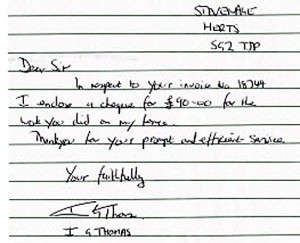 STEVENAGE
HERTS
SG2 TPP
Dear Sir
In respect to your invoice No 18744
I enclose a cheque for £90-00 for the
work you did on my fence.
Thankyou for your prompt and efficient service.
Your faithfully
I G Thomas.
I G THOMAS